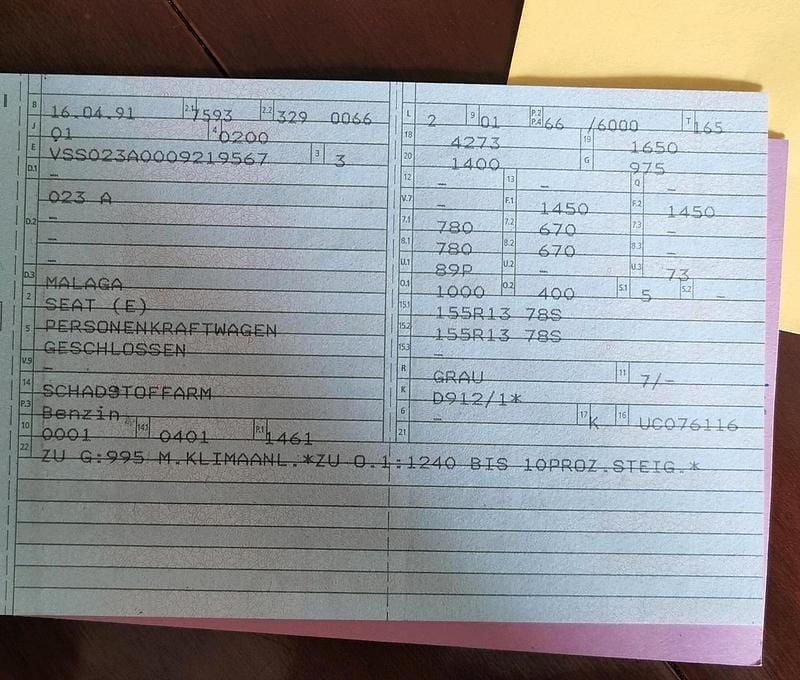 B 16.04.91 2.1 7593 2.2 329 0066
J 01 4 0200
E VSS023A0009219567 3 3
D.1 –
023 A
D.2 –
–
–
D.3 MALAGA
2 SEAT (E)
5 PERSONENKRAFTWAGEN
GESCHLOSSEN
V.9 –
14 SCHADSTOFFARM
P.3 Benzin
10 0001 14.1 0401 P.1 1461
L 2 9 01 P.2 P.4 66 /6000 T 165
18 4273 19 1650
20 1400 G 975
12 – 13 – Q –
V.7 – F.1 1450 F.2 1450
7.1 780 7.2 670 7.3 –
8.1 780 8.2 670 8.3 –
U.1 89P U.2 – U.3 73
O.1 1000 O.2 400 S.1 5 S.2 –
15.1 155R13 78S
15.2 155R13 78S
15.3 –
R GRAU 11 7/–
K D912/1*
6 – 17 K 16 UC076116
21
22 ZU G:995 M.KLIMAANL.*ZU O.1:1240 BIS 10PROZ.STEIG.*